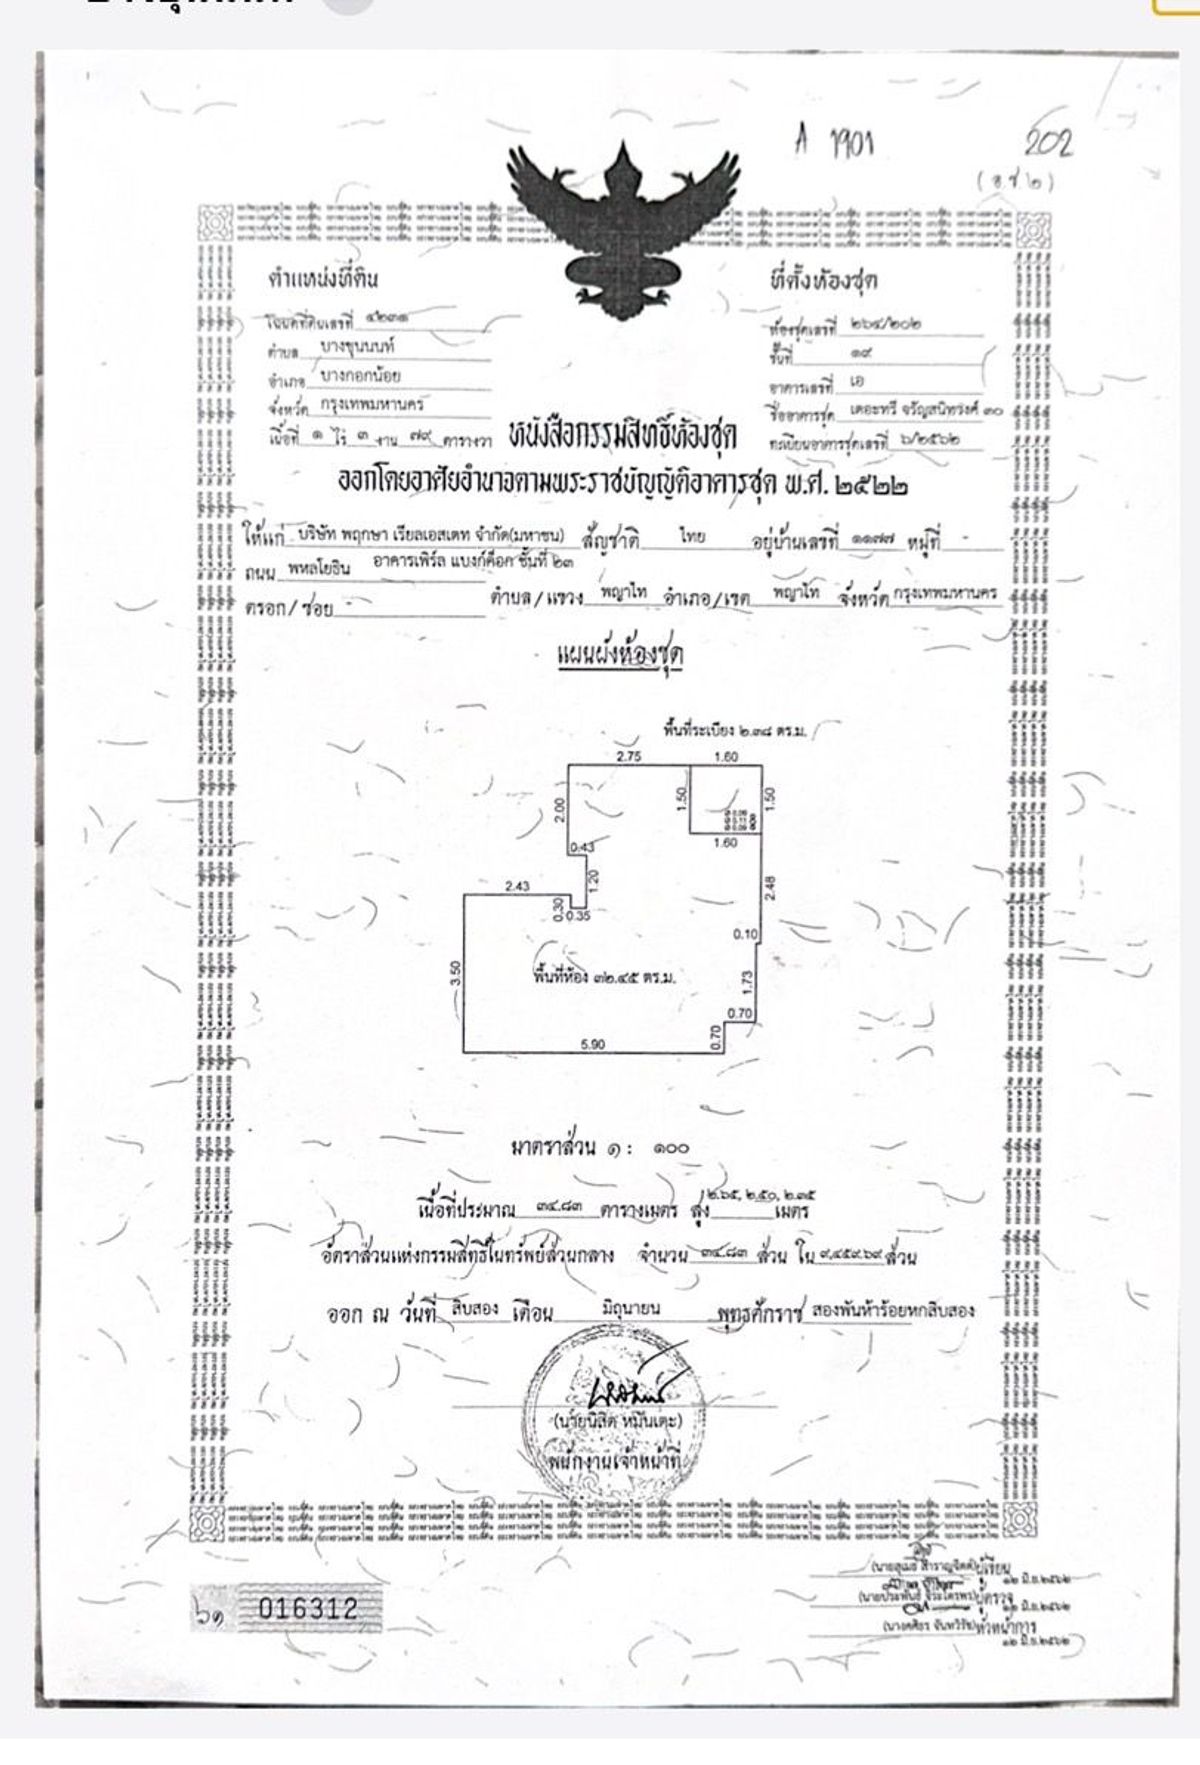 A 1901
202
(อ.ช.๒)
ตำแหน่งที่ดิน
โฉนดที่ดินเลขที่ ๔๒๓๑
ตำบล บางขุนนนท์
อำเภอ บางกอกน้อย
จังหวัด กรุงเทพมหานคร
เนื้อที่ ๑ ไร่ ๓ งาน ๗๙ ตารางวา
ที่ตั้งห้องชุด
ห้องชุดเลขที่ ๒๖๔/๒๐๒
ชั้นที่ ๑๙
อาคารเลขที่ เอ
ชื่ออาคารชุด เดอะทรี จรัญสนิทวงศ์ ๓๐
ทะเบียนอาคารชุดเลขที่ ๖/๒๕๖๒
หนังสือกรรมสิทธิ์ห้องชุด
ออกโดยอาศัยอำนาจตามพระราชบัญญัติอาคารชุด พ.ศ. ๒๕๒๒
ให้แก่ บริษัท พฤกษา เรียลเอสเตท จำกัด(มหาชน) สัญชาติ ไทย อยู่บ้านเลขที่ ๑๑๗๗ หมู่ที่ -
ถนน พหลโยธิน อาคารเพิร์ล แบงก์ค็อก ชั้นที่ ๒๓
ตรอก/ซอย - ตำบล/แขวง พญาไท อำเภอ/เขต พญาไท จังหวัด กรุงเทพมหานคร
แผนผังห้องชุด
พื้นที่ระเบียง ๒.๓๘ ตร.ม.
2.75 1.60
2.00 1.50 1.50
1.60
0.43
1.20
2.43 2.48
0.30 0.35
0.10
3.50 พื้นที่ห้อง ๓๒.๔๕ ตร.ม. 1.73
0.70
0.70
5.90
มาตราส่วน ๑ : ๑๐๐
เนื้อที่ประมาณ ๓๔.๘๓ ตารางเมตร สูง ๒.๖๕, ๒.๕๐, ๒.๓๕ เมตร
อัตราส่วนแห่งกรรมสิทธิ์ในทรัพย์ส่วนกลาง จำนวน ๓๔.๘๓ ส่วน ใน ๙,๔๕๙.๖๙ ส่วน
ออก ณ วันที่ สิบสอง เดือน มิถุนายน พุทธศักราช สองพันห้าร้อยหกสิบสอง
(นายนิสิต หมีนเตะ)
พนักงานเจ้าหน้าที่
ผู้เขียน
๑๒ มิ.ย.๒๕๖๒
ผู้ตรวจ
๑๒ มิ.ย.๒๕๖๒
หัวหน้าการ
๑๒ มิ.ย.๒๕๖๒
๖๑ 016312